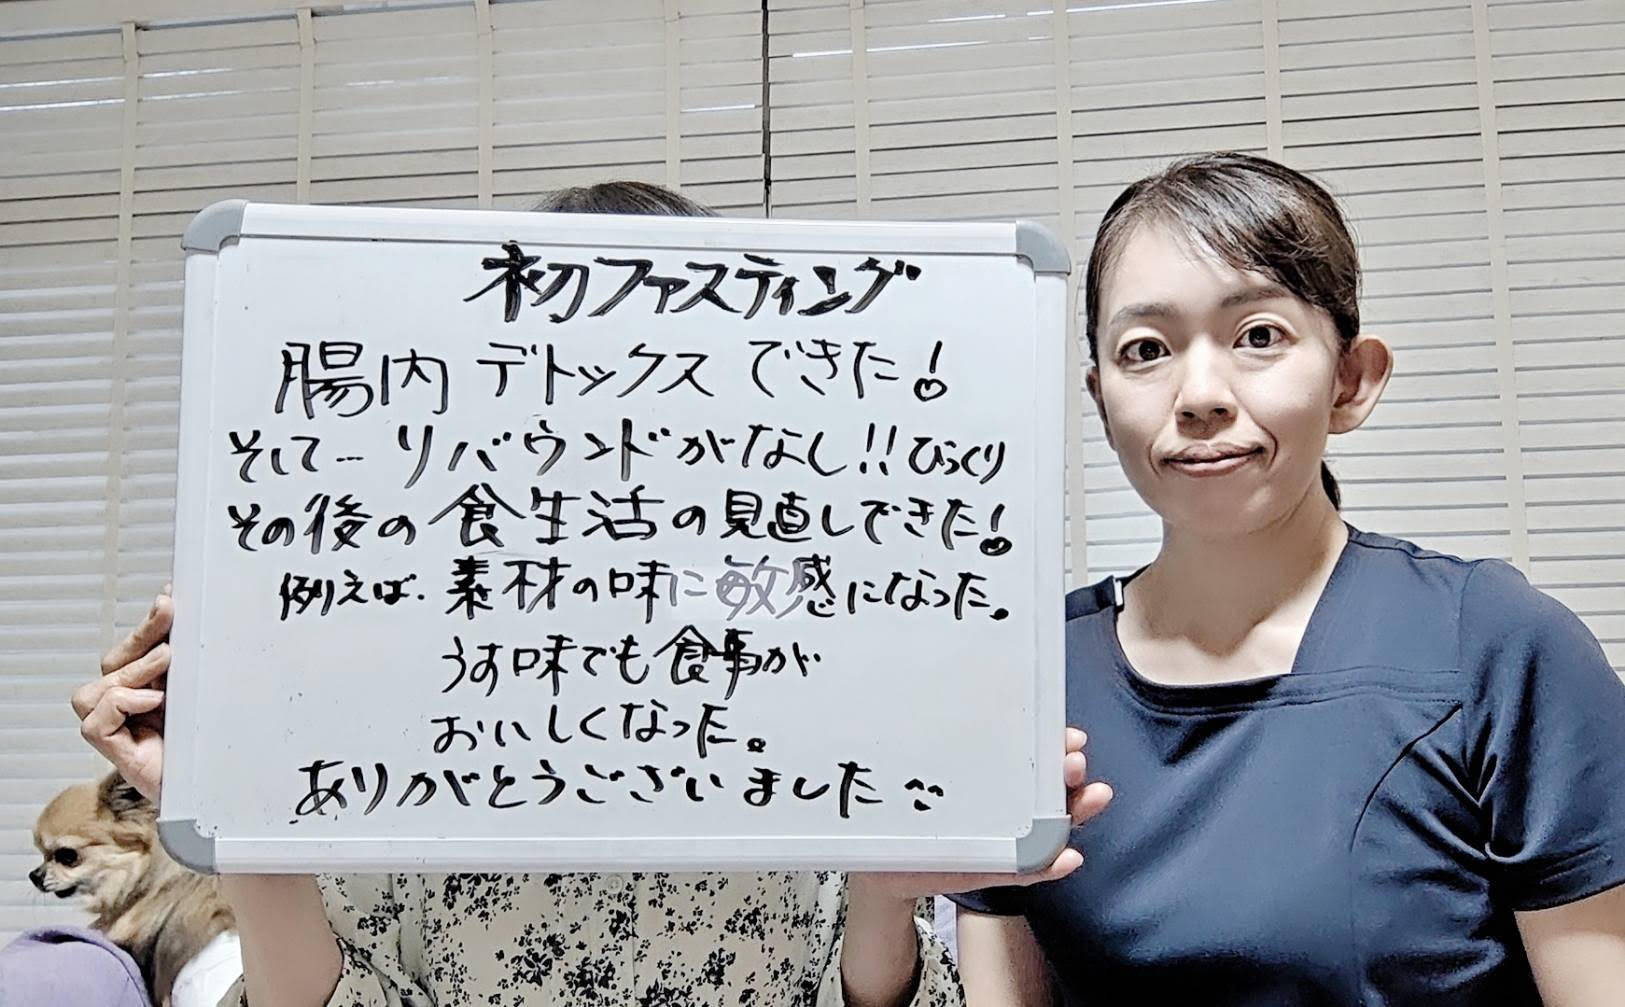 初ファスティング
腸内デトックスできた!
そして… リバウンドがなし!! びっくり
その後の食生活の見直しできた!
例えば、素材の味に敏感になった。
うす味でも食事が
おいしくなった。
ありがとうございました